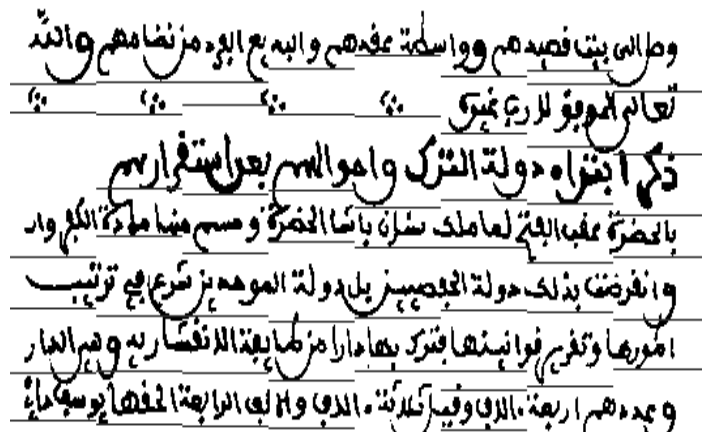 بيت قصيدهم وواسطة عقدهم والبديع الفرد من نضامهم والله
تعالى الموفق لا رب غيره
ذكر ابتداء دولة الترك واحوالهم بعد استقرارهم
بالحضرة عقب الفتح لما ملك سنان باشا الحضرة وحسم منها مادة الكفر
وانقرضت بذلك دولة الحفصيين بل دولة الموحدين شرع في ترتيب
امورها وتقرير قوانينها فترك بها دارا من طايفة الانقشارية وهم الدار
وعددهم اربعة ءالاف وقيل ثلاثة ءالاف والالف الرابعة الحقها يوسف داي